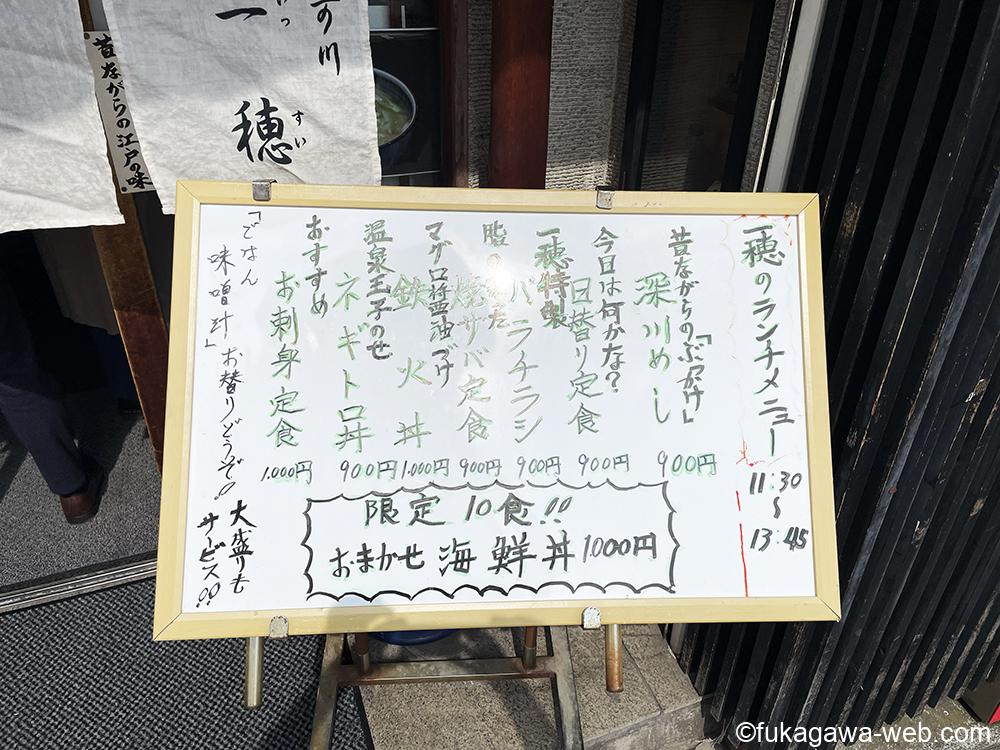 一穂
いっ
すい
昔ながらの江戸の味
一穂のランチメニュー
11:30
〜
13:45
昔ながらの「ぶっかけ」
深川めし
900円
今日は何かな?
日替り定食
900円
一穂特製
バラチラシ
900円
焼サバ定食
900円
マグロ醤油づけ
鉄火丼
1.000円
温泉玉子のせ
ネギトロ丼
900円
おすすめ
お刺身定食
1.000円
限定10食!!
おまかせ海鮮丼1.000円
「ごはん
味噌汁」お替りどうぞ!!
大盛りも
サービス!!
©fukagawa-web.com